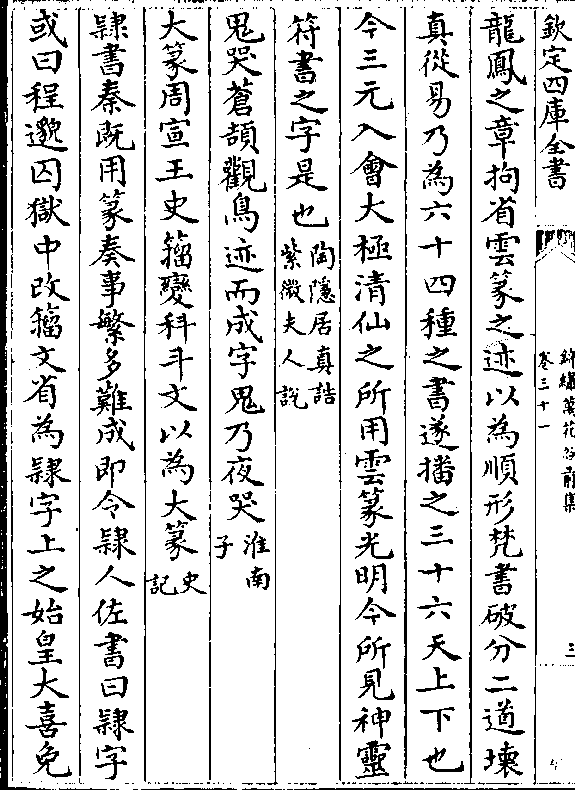 欽定四庫全書
錦繡萬花谷前集
卷三十一
三
龍鳳之章拘省雲篆之迹以為順形梵書破分二道壞
真從易乃為六十四種之書遂播之三十六天上下也
今三元八會大極清仙之所用雲篆光明今所見神靈
符書之字是也陶隱居真誥紫微夫人説
鬼哭蒼頡觀鳥迹而成字鬼乃夜哭淮南子
大篆周宣王史籀變科斗文以為大篆史記
隸書秦既用篆奏事繁多難成即令隸人佐書曰隸字
或曰程邈囚獄中改籀文省為隸字上之始皇大喜免